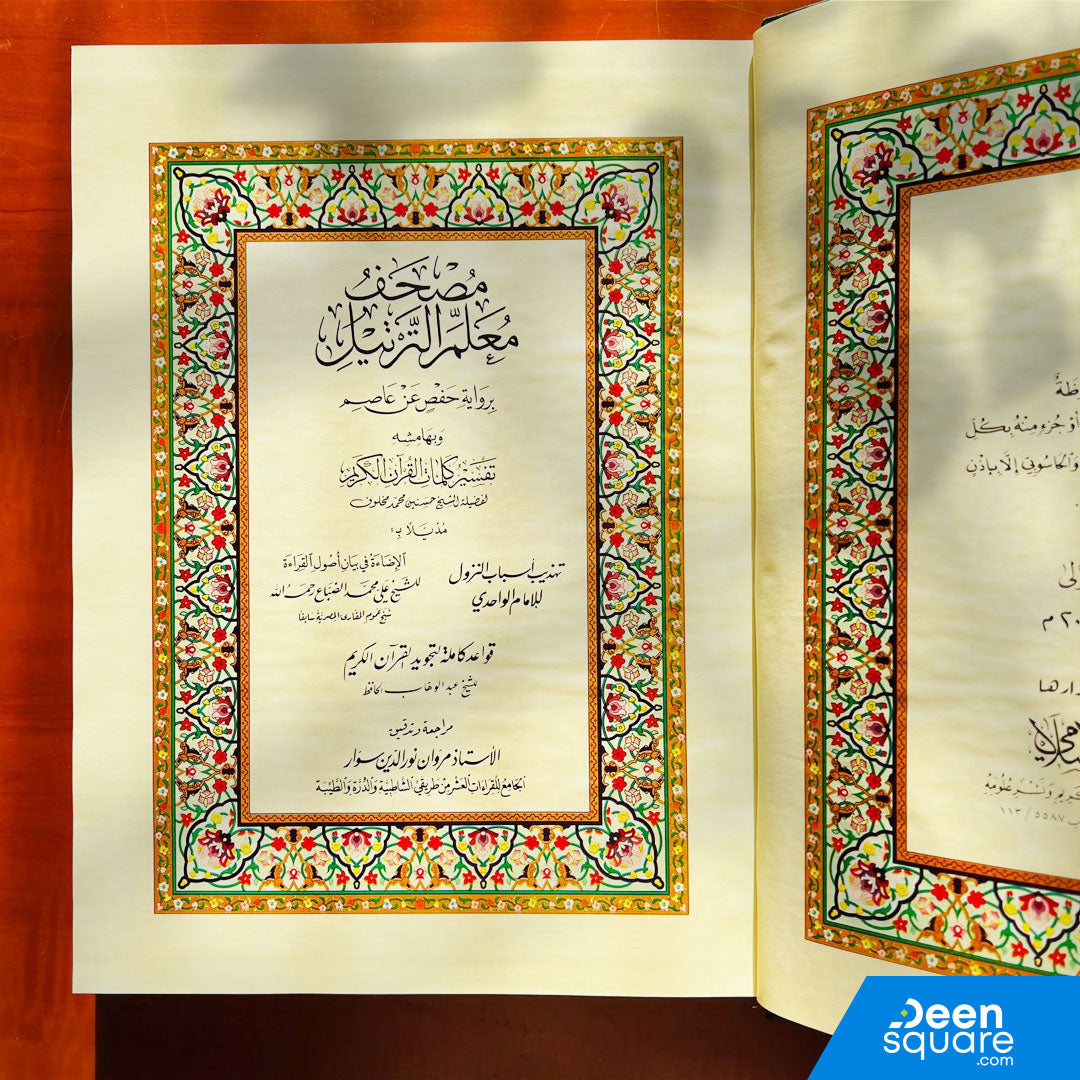 مُصْحَفُ
مُعَلِّمِ التَّرْتِيلِ
بِرِوَايَةِ حَفْصٍ عَنْ عَاصِمٍ
وَبهَامِشِهِ
تَفْسِيرُ كَلِمَاتِ القُرْآنِ الكَرِيمِ
لفضيلة الشيخ حسنين محمد مخلوف
مُذيّلًا بـ:
تهذيب أسباب النزول
للإمام الواحدي
الإضَاءَة في بيَانِ أصُولِ القِرَاءَة
للشيخ علي محمد الضباع رحمه الله
شيخ عموم المقارئ المصرية سابقًا
قواعد كاملة لتجويد القرآن الكريم
للشيخ عبد الوهاب الحافظ
مراجعة وتدقيق:
الأستاذ مروان نور الدين سوار
الجامع للقراءات العشر من طريقي الشاطبية والدرة والطيبة
أوْ جُزءٍ مِنْهُ بِكُلِّ
وَالحَاسُوبي إلَّا بإذنٍ
١١٣/٥٥٨٧
Deen
square
.com